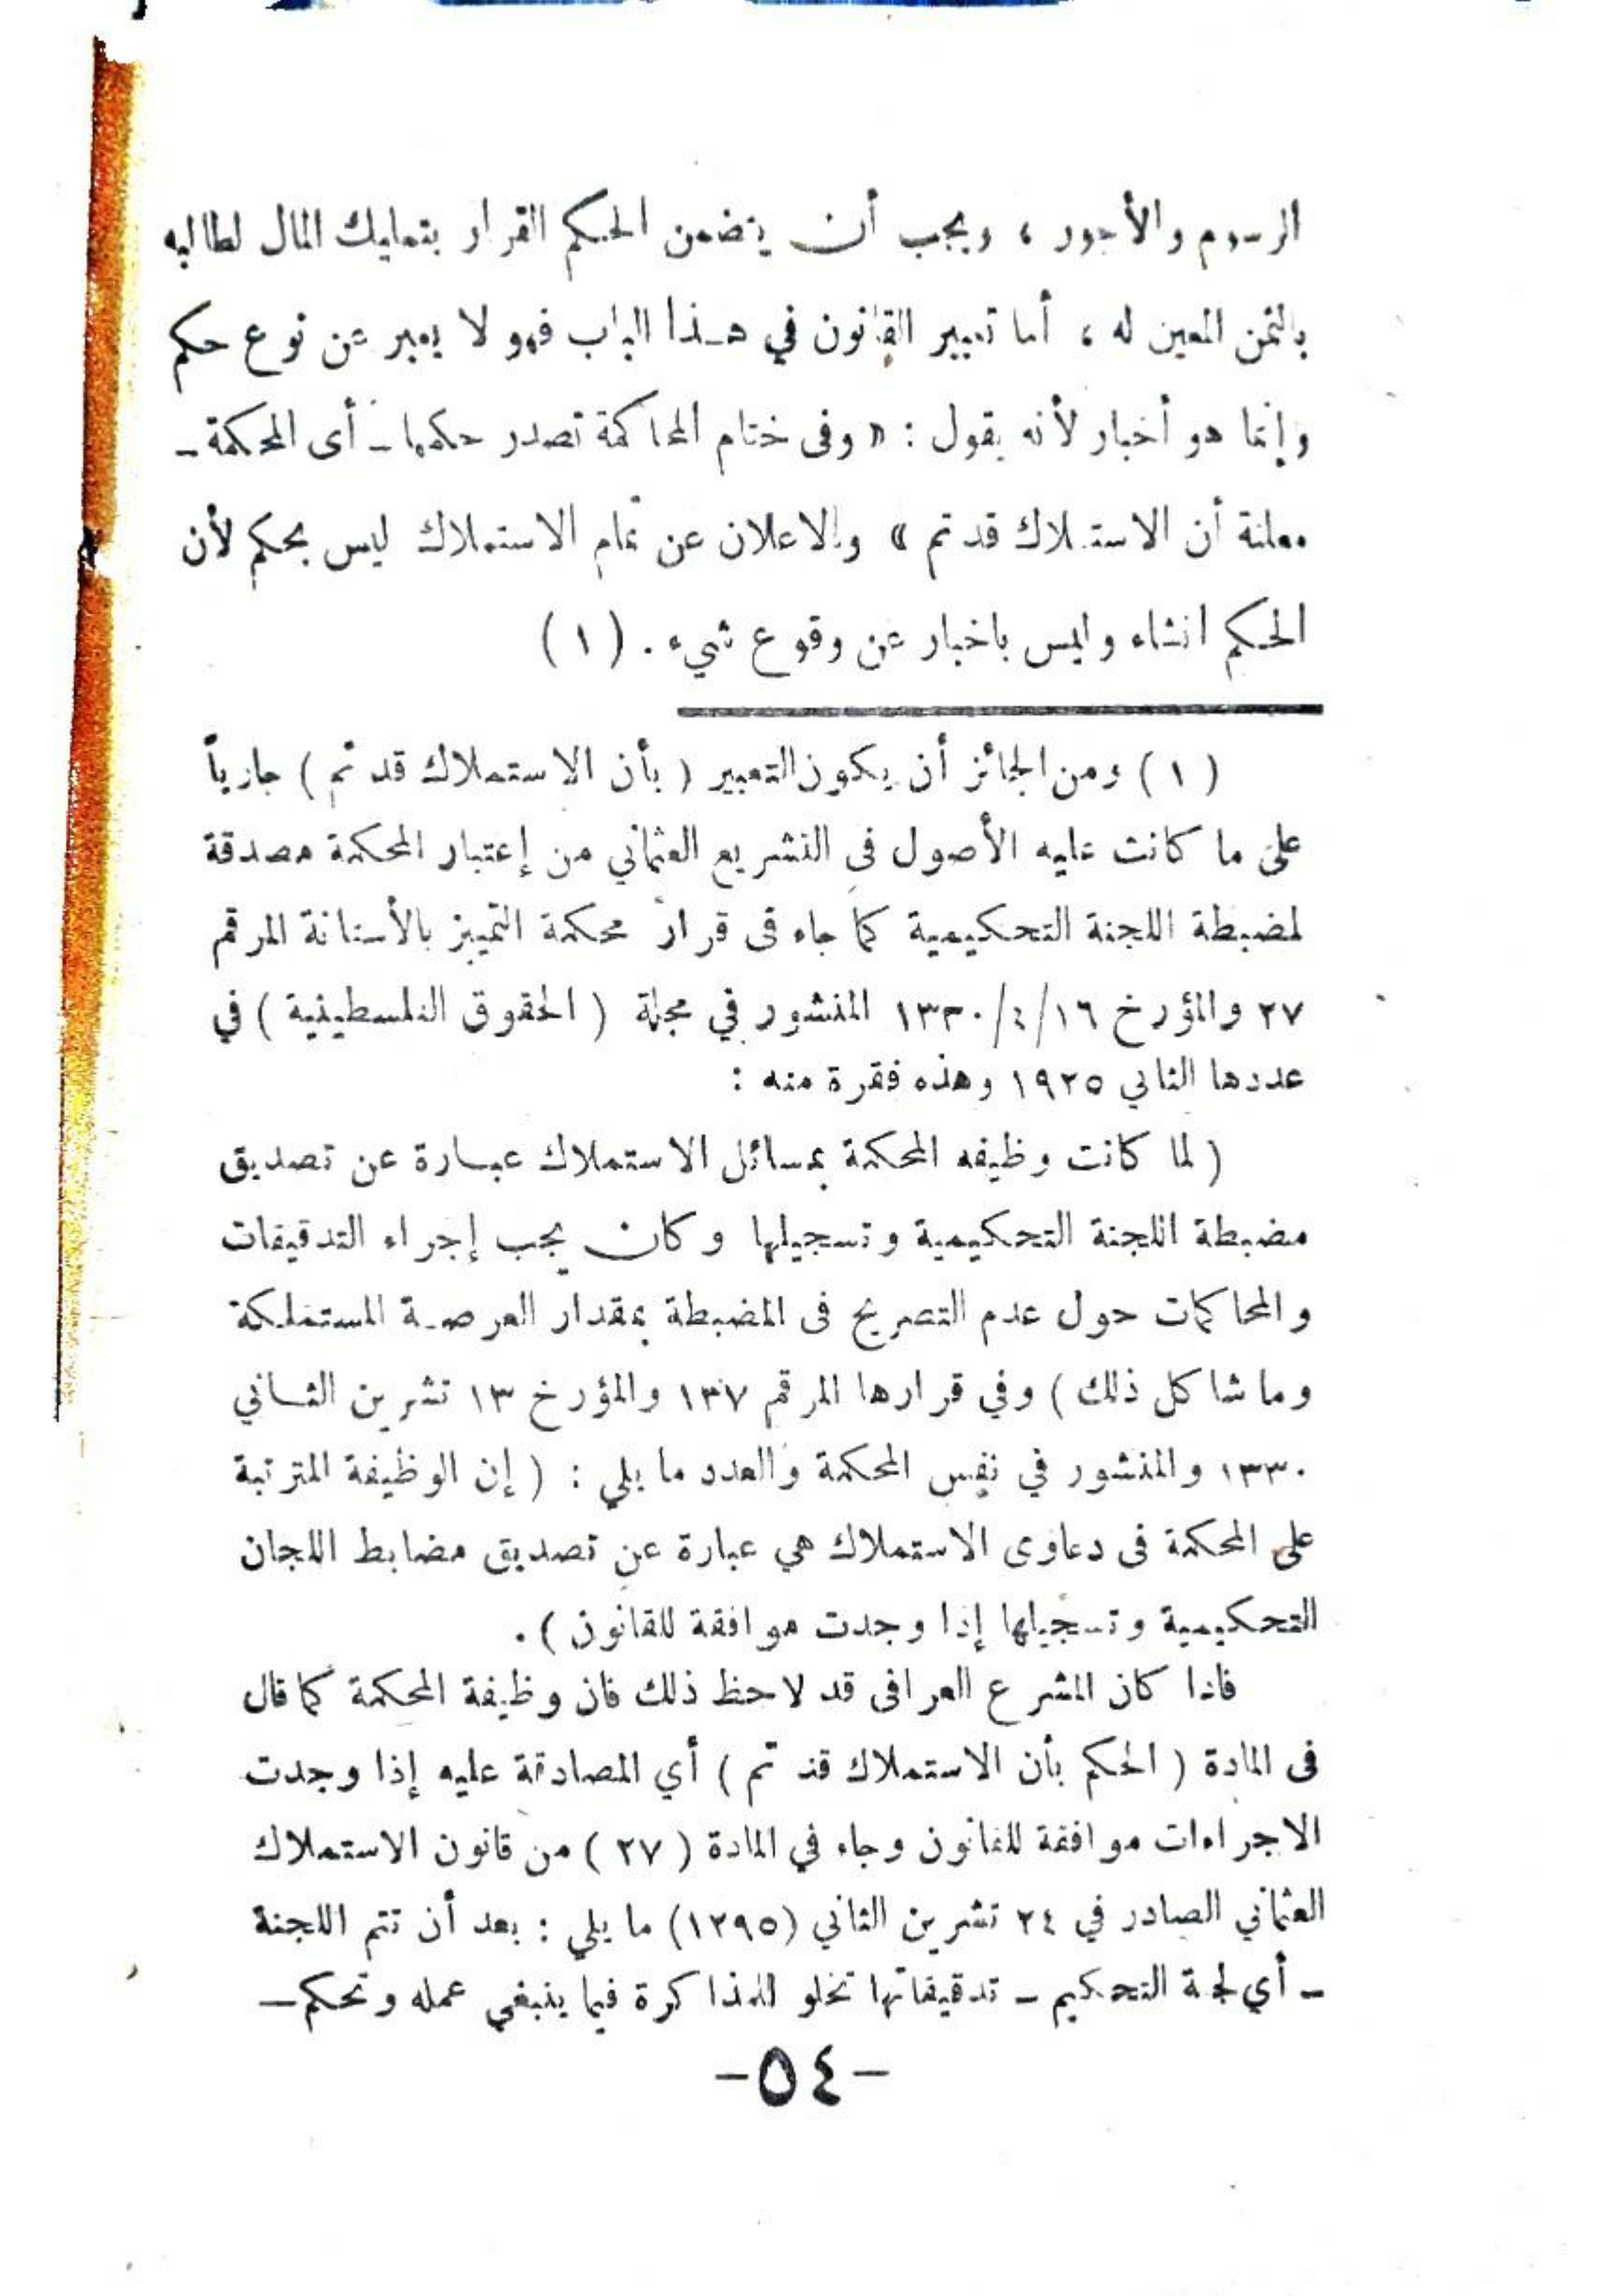 الرسوم والأجور ، ويجب أن يتضمن الحكم القرار بتمليك المال لطالبه
بالثمن المعين له ، أما تعبير القانون في هـذا الباب فهو لا يعبر عن نوع حكم
وإنما هو أخبار لأنه يقول : « وفى ختام المحاكمة تصدر حكمها ـ أى المحكمة ـ
معلنة أن الاستملاك قد تم » والاعلان عن تمام الاستملاك ليس بحكم لأن
الحكم انشاء وليس باخبار عن وقوع شيء . ( ١ )
( ١ ) ومن الجائز أن يكون التعبير ( بأن الاستملاك قد تم ) جارياً
على ما كانت عليه الأصول فى التشريع العثماني من إعتبار المحكمة مصدقة
لمضبطة اللجنة التحكيمية كما جاء فى قرار محكمة التمييز بالأستانة المرقم
٢٧ والمؤرخ ١٦/٤/١٣٣٠ المنشور في مجلة ( الحقوق الفلسطينية ) في
عددها الثاني ١٩٢٥ وهذه فقرة منه :
( لما كانت وظيفه المحكمة بمسائل الاستملاك عبـارة عن تصديق
مضبطة اللجنة التحكيمية وتسجيلها وكان يجب إجراء التدقيقات
والمحاكمات حول عدم التصريح فى المضبطة بمقدار العرصـة المستملكة
وما شاكل ذلك ) وفي قرارها المرقم ١٣٧ والمؤرخ ١٣ تشرين الثـاني
١٣٣٠ والمنشور في نفس المحكمة والعدد ما يلي : ( إن الوظيفة المترتبة
على المحكمة فى دعاوى الاستملاك هي عبارة عن تصديق مضابط اللجان
التحكيمية وتسجيلها إذا وجدت موافقة للقانون ) .
فاذا كان المشرع العراقى قد لاحظ ذلك فان وظيفة المحكمة كما قال
فى المادة ( الحكم بأن الاستملاك قد تم ) أي المصادقة عليه إذا وجدت
الاجراءات موافقة للقانون وجاء في المادة ( ٢٧ ) من قانون الاستملاك
العثماني الصادر في ٢٤ تشرين الثاني (١٢٩٥) ما يلي : بعد أن تتم اللجنة
ـ أي لجنة التحكيم ـ تدقيقاتها تخلو للمذاكرة فيما ينبغي عمله وتحكم ـ
-٥٤-